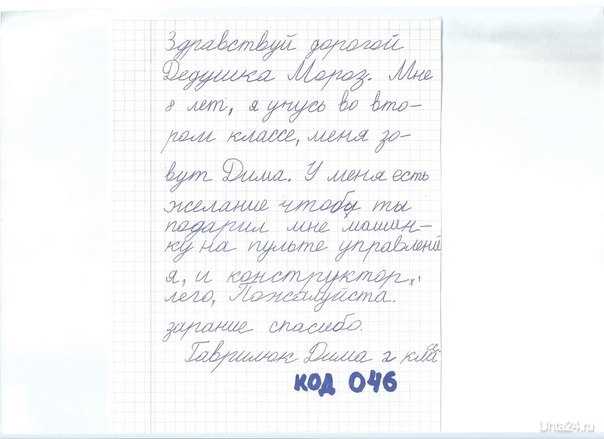 Здравствуй дорогой
Дедушка Мороз. Мне
8 лет, я учусь во вто-
ром классе, меня зо-
вут Дима. У меня есть
желание чтобы ты
подарил мне машин-
ку на пульте управлени
я, и конструктор,
лего, Пожалуйста.
зарание спасибо.
Гаврилюк Дима 2 класс
КОД 046
Uhta24.ru